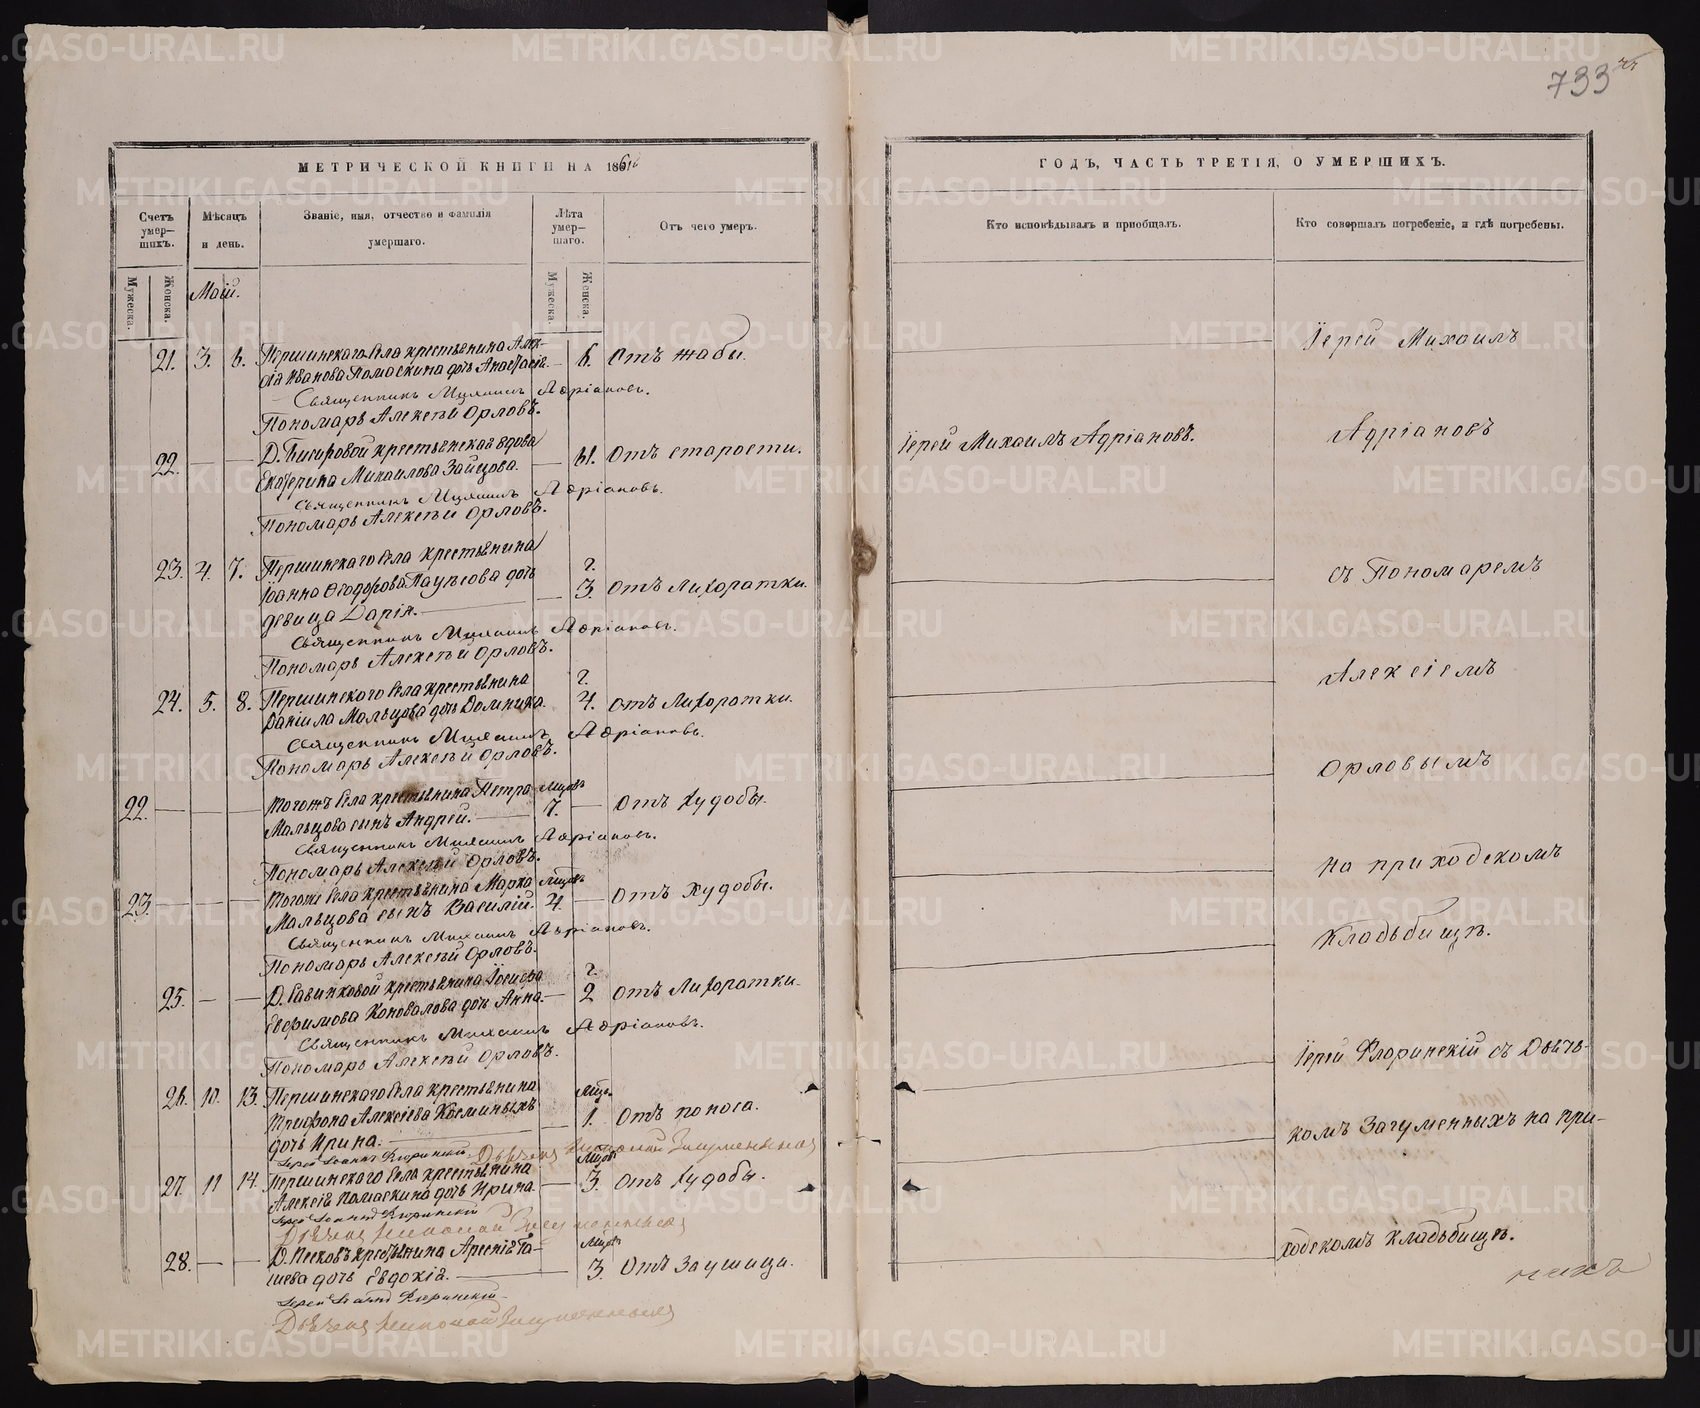 733
МЕТРИЧЕСКОЙ КНИГИ НА 1861й
Счетъ умер-шихъ.
Мѣсяцъ и день.
Званіе, имя, отчество и фамилія умершаго.
Лѣта умер-шаго.
Отъ чего умеръ.
Мужеска.
Женска.
Мужеска.
Женска.
Маій.
21. 3. 6. Першинскаго села крестьянина Алек-
сія Иванова Помаскина дочь Анастасія. — 6. Отъ жабы.
Священникъ Михаилъ Адріановъ.
Пономарь Алексѣй Орловъ.
22. — — Д. крестьянская вдова
Екатерина Михаилова Зайцова. — 61. Отъ старости.
Священникъ Михаилъ Адріановъ.
Пономарь Алексѣй Орловъ.
23. 4. 7. Першинскаго села крестьянина
Іоанна Ѳеодорова дочь
девица Дарія. — г. 3. отъ Лихоратки.
Священникъ Михаилъ Адріановъ.
Пономарь Алексѣй Орловъ.
24. 5. 8. Першинскаго села крестьянина
Даніила Мальцова дочь Домника. г. 4. отъ Лихоратки.
Священникъ Михаилъ Адріановъ.
Пономарь Алексѣй Орловъ.
22. — — — Тогожъ села крестьянина Петра
Мальцова сынъ Андрей. — 7. — Отъ худобы.
Священникъ Михаилъ Адріановъ.
Пономарь Алексѣй Орловъ.
23. — — — Тогоже села крестьянина Марка
Мальцова сынъ Василій. 4. — отъ худобы.
Священникъ Михаилъ Адріановъ.
Пономарь Алексѣй Орловъ.
25. — — Д. Савинковой крестьянина Іосифа
Евфимова Коновалова дочь Анна. — г. 2 отъ Лихоратки.
Священникъ Михаилъ Адріановъ.
Пономарь Алексѣй Орловъ.
26. 10. 13. Першинскаго села крестьянина
Трифона Алексіева Косминыхъ
дочь Ирина. — 1. Отъ поноса.
Іерей Іоаннъ Флоринскій
27. 11 14. Першинскаго села крестьянина
Алексія Помаскина дочь Ирина. — 3. отъ худобы.
Іерей Іоаннъ Флоринскій
28. — — Д. Песковъ крестьянина Арсенія Га-
шева дочь Евдокія. — 3. Отъ Заушица.
Іерей Іоаннъ Флоринскій
ГОДЪ, ЧАСТЬ ТРЕТІЯ, О УМЕРШИХЪ.
Кто исповѣдывалъ и пріобщалъ.
Кто совершалъ погребеніе, и гдѣ погребены.
Іерей Михаилъ Адріановъ.
Іерей Михаилъ
Адріановъ
съ Пономаремъ
Алексіемъ
Орловымъ
на приходскомъ
Кладьбищѣ.
Іерей Флоринскій съ Дьяч-
комъ Загуменныхъ на при-
ходскомъ кладьбищѣ.
METRIKI.GASO-URAL.RU